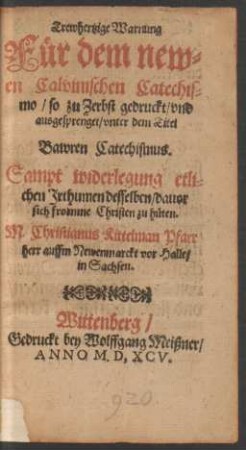 Trewhertzige Warnung
Für dem new-
en Calvinischen Catechis-
mo/ so zu Zerbst gedruckt/ vnd
ausgesprenget/ vnter dem Titel
Bawren Catechismus.
Sampt widerlegung etli-
chen Irthumen desselben/ dauor
sich fromme Christen zu hüten.
M Christianus Kittelman Pfarr
herr auffm Newenmarckt vor Halle/
in Sachsen.
Wittenberg/
Gedruckt bey Wolffgang Meißner/
ANNO M. D, XCV.
920.